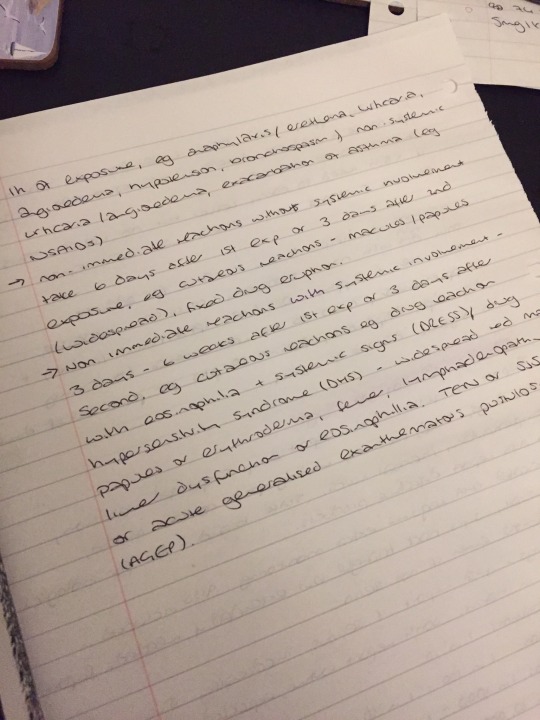 5mg/k
1h of exposure, eg anaphylaxis (erethema, urticaria,
angioedema, hypotension, bronchospasm) non-systemic
urticaria/angioedema, exacerbation of asthma (eg
NSAIDs)
→ non-immediate reactions without systemic involvement
take 6 days after 1st exp or 3 days after 2nd
exposure, eg cutaneous reactions - macules/papules
(widespread), fixed drug eruption.
→ Non immediate reactions with systemic involvement -
3 days - 6 weeks after 1st exp or 3 days after
second, eg cutaneous reactions eg drug reaction
with eosinophilia + systemic signs (DRESS)/drug
hypersensitivity syndrome (DHS) - widespread red ma
papules or erythroderma, fever, lymphadenopathy
liver dysfunction or eosinophilia. TEN or SJS
or acute generalised exanthematous pustulos
(AGEP).